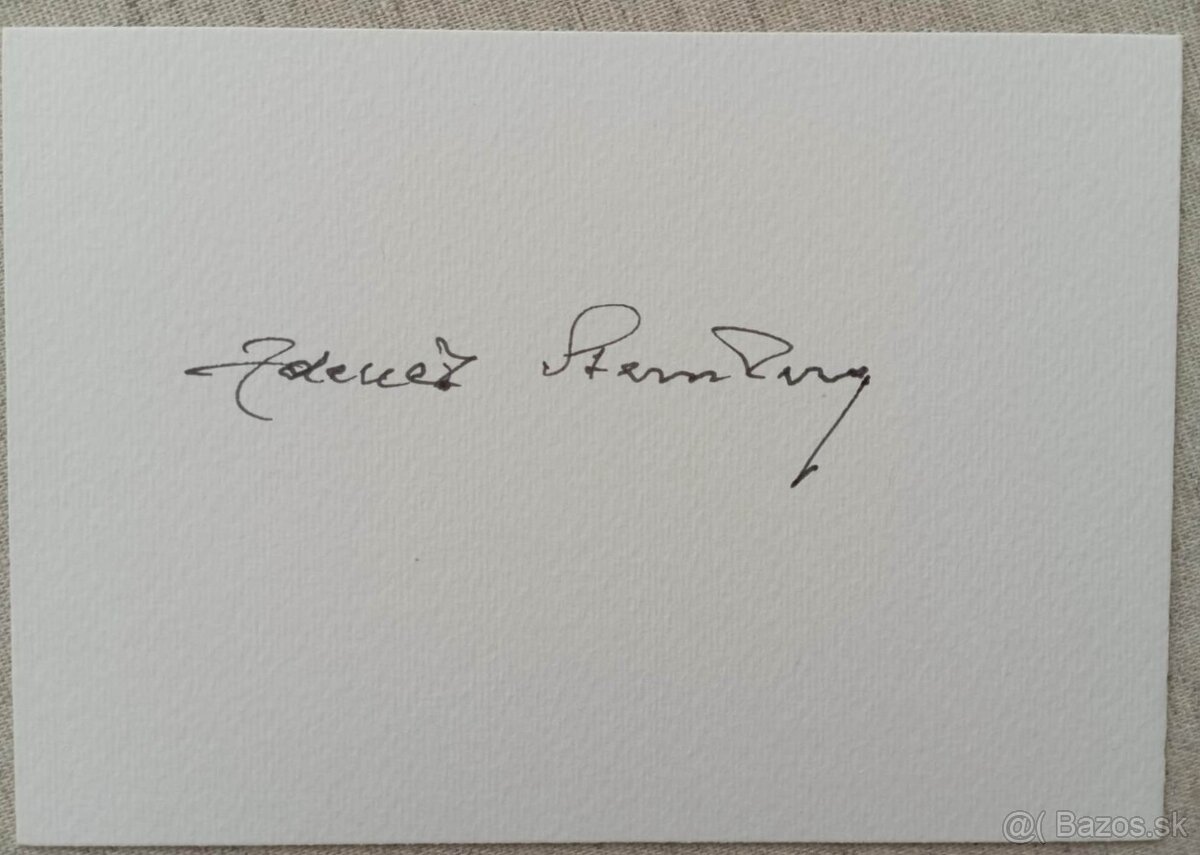 Zdeněk Sternberg
@( Bazos.sk